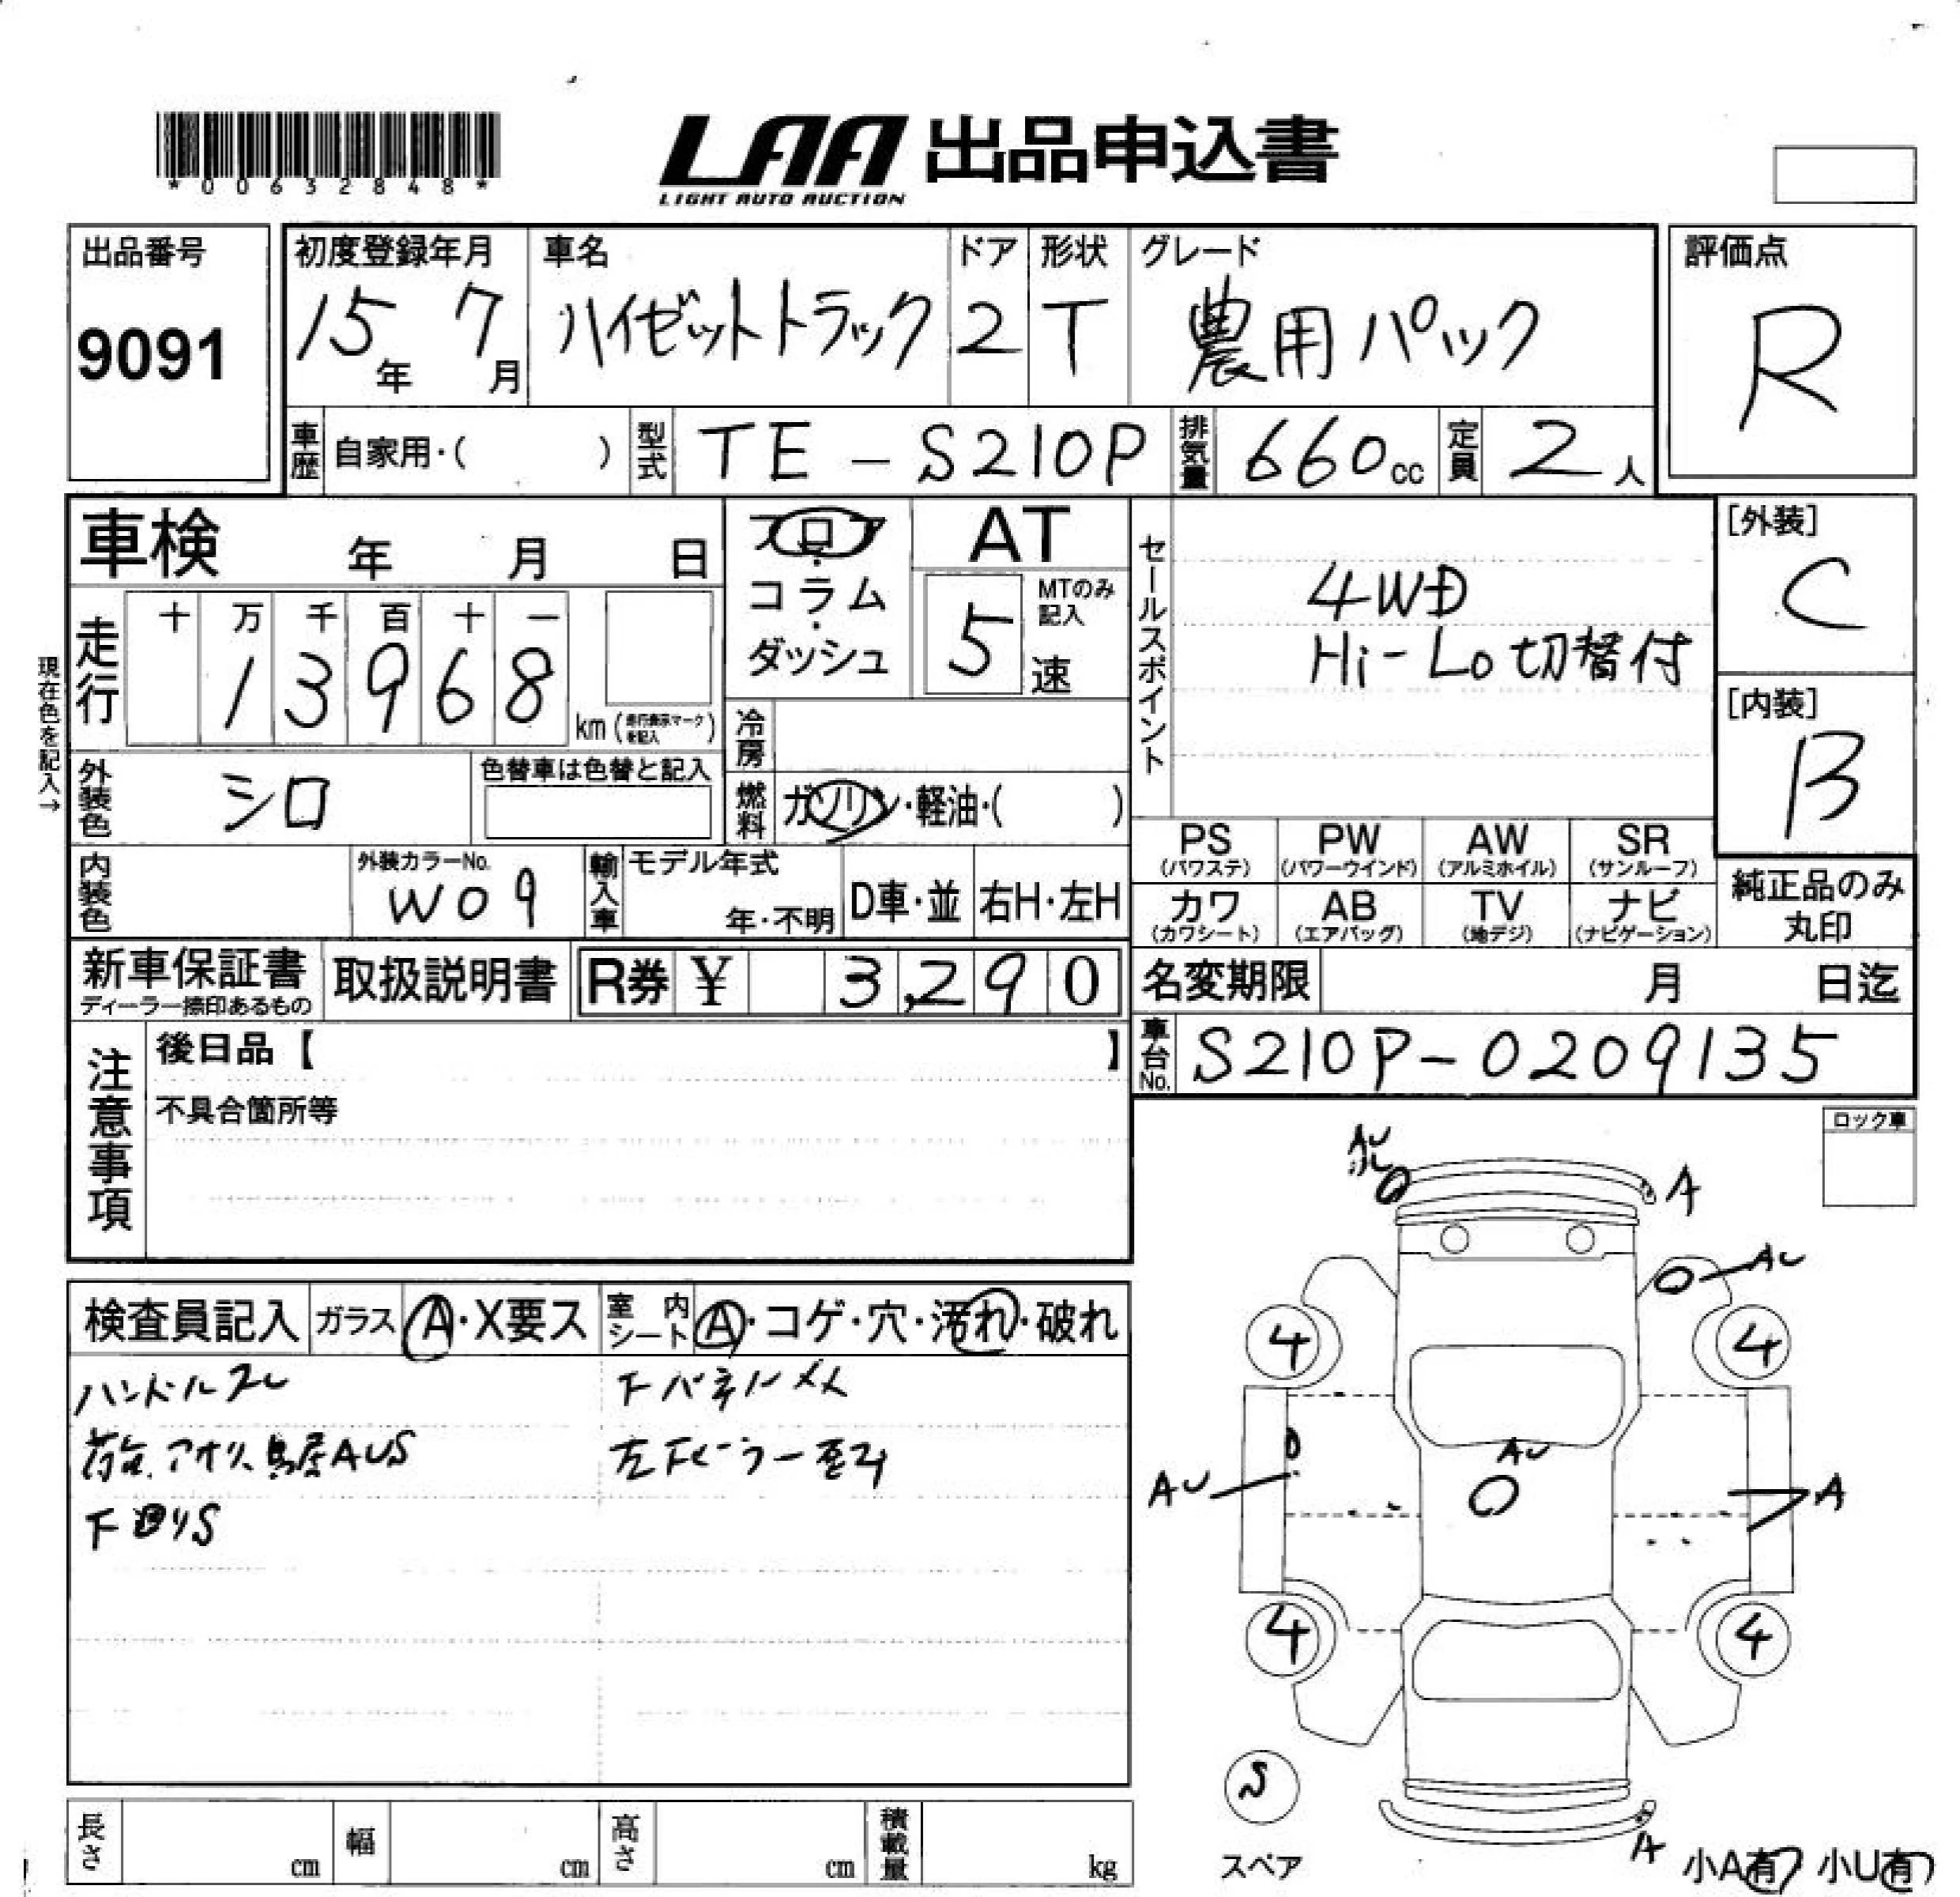 *00632848*
LAA 出品申込書
LIGHT AUTO AUCTION
出品番号
9091
初度登録年月
15年 7月
車名
ハイゼットトラック
ドア
2
形状
T
グレード
農用パック
評価点
R
車歴 自家用・( )
型式 TE-S210P
排気量 660cc
定員 2人
車検 年 月 日
フロア・
コラム・
ダッシュ
AT
MTのみ記入
5速
セールスポイント
4WD
Hi-Lo切替付
[外装]
C
[内装]
B
現在色を記入→
走行
十 万 千 百 十 一
1 3 9 6 8
km (走行表示マークを記入)
冷房
外装色 シロ
色替車は色替と記入
燃料 ガソリン・軽油・( )
内装色
外装カラーNo.
W09
輸入車 モデル年式
年・不明
D車・並
右H・左H
PS
(パワステ)
PW
(パワーウインド)
AW
(アルミホイル)
SR
(サンルーフ)
カワ
(カワシート)
AB
(エアバッグ)
TV
(地デジ)
ナビ
(ナビゲーション)
純正品のみ
丸印
新車保証書
ディーラー捺印あるもの
取扱説明書
R券 ¥ 3,290
名変期限 月 日迄
車台No. S210P-0209135
注意事項
後日品【 】
不具合箇所等
ロック車
検査員記入
ガラス A・X要ス
室内シート A・コゲ・穴・汚れ・破れ
ハンドルスレ
アオリ、鳥居AUS
下回りS
下
左
AU
A
AU
4
4
AU
AU
A
4
4
S
スペア
A
小A有 小U有
長さ cm
幅 cm
高さ cm
積載量 kg